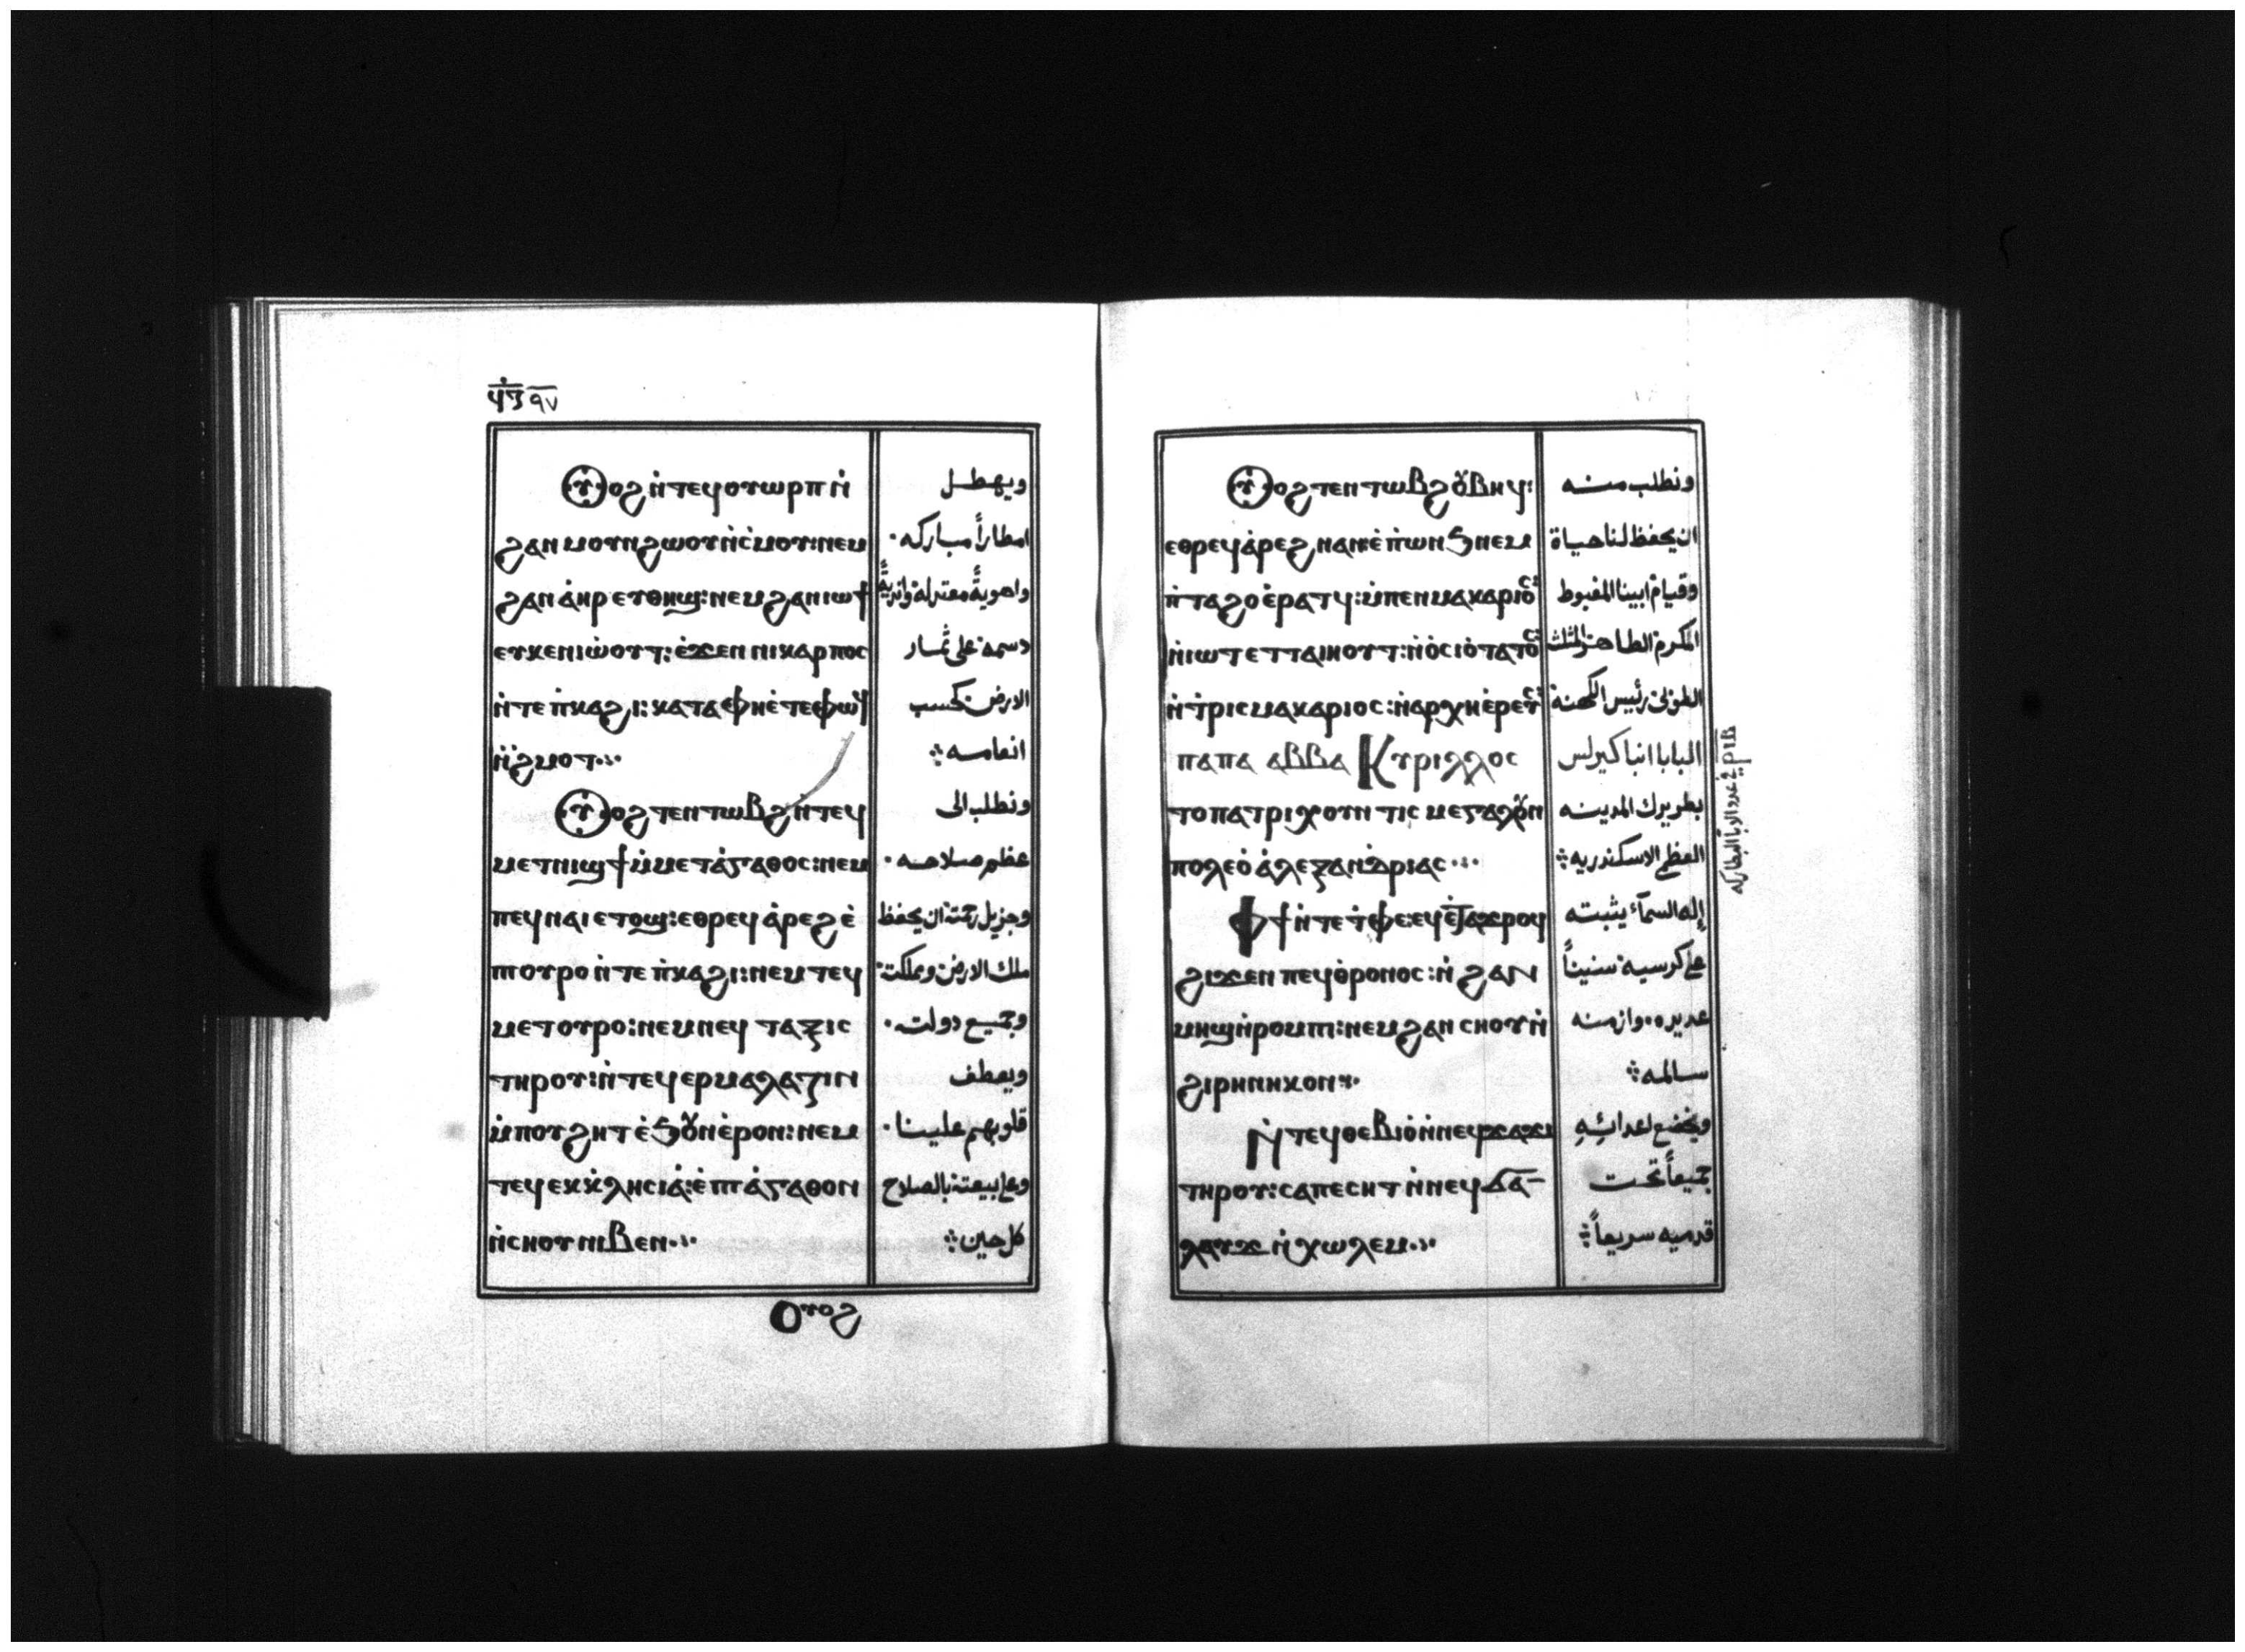 ϥⲍ ٩٧
Ⲟⲩⲟϩ ⲛ̀ⲧⲉϥⲟⲩⲱⲣⲡ ⲛ̀ ويهطل
ϩⲁⲛⲙⲟⲩⲛϩⲱⲟⲩ ⲛ̀ⲥ̀ⲙⲟⲩ: ⲛⲉⲙ امطاراً مباركه·
ϩⲁⲛⲁ̀ⲏⲣ ⲉⲩⲑⲏϣ: ⲛⲉⲙ ϩⲁⲛⲓⲱϯ واهويةً معتدله
ⲉⲩⲕⲉⲛⲓⲱ̀ⲟⲩⲧ: ⲉ̀ϫⲉⲛ ⲛⲓⲕⲁⲣⲡⲟⲥ دسمه على ثمار
ⲛ̀ⲧⲉ ⲡ̀ⲕⲁϩⲓ: ⲕⲁⲧⲁ ⲫⲏⲉ̀ⲧⲉ ⲫⲱϥ الارض كحسب
ⲛ̀ϩ̀ⲙⲟⲧ.·. انعامه ܀
Ⲟⲩⲟϩ ⲧⲉⲛⲧⲱⲃϩ ⲛ̀ⲧⲉϥ ونطلب الى
ⲙⲉⲧⲛⲓϣϯ ⲙ̀ⲙⲉⲧⲁ̀ⲅⲁⲑⲟⲥ: ⲛⲉⲙ عظم صلاحه·
ⲡⲉϥⲛⲁⲓ ⲉⲧⲟϣ: ⲉⲑⲣⲉϥⲁ̀ⲣⲉϩ ⲉ̀ وجزيل رحمته ان يحفظ
ⲡⲟⲩⲣⲟ ⲛ̀ⲧⲉ ⲡ̀ⲕⲁϩⲓ: ⲛⲉⲙ ⲧⲉϥ ملك الارض ومملكته
ⲙⲉⲧⲟⲩⲣⲟ: ⲛⲉⲙ ⲛⲉϥ ⲧⲁⲝⲓⲥ وجميع دولته·
ⲧⲏⲣⲟⲩ: ⲛ̀ⲧⲉϥⲉⲣⲙⲁⲗⲁⲍⲓⲛ ويعطف
ⲙ̀ⲡⲟⲩϩⲏⲧ ⲉ̀ϧⲟⲩⲛ ⲉ̀ⲣⲟⲛ: ⲛⲉⲙ قلوبهم علينا·
ⲧⲉϥⲉⲕⲕ̀ⲗⲏⲥⲓⲁ̀: ⲉ̀ⲡⲓⲁ̀ⲅⲁⲑⲟⲛ وعلى بيعته بالصلاح
ⲛ̀ⲥⲏⲟⲩ ⲛⲓⲃⲉⲛ.·. كل حين ܀
Ⲟⲩⲟϩ
Ⲟⲩⲟϩ ⲧⲉⲛⲧⲱⲃϩ ⲟⲩⲃⲏϥ: ونطلب منه
ⲉⲑⲣⲉϥⲁ̀ⲣⲉϩ ⲛⲁⲛ ⲉ̀ⲡ̀ⲱⲛϧ ⲛⲉⲙ ان يحفظ لنا حياة
ⲡ̀ⲧⲁϩⲟ ⲉ̀ⲣⲁⲧϥ: ⲙ̀ⲡⲉⲛⲙⲁⲕⲁⲣⲓⲟⲥ: وقيام ابينا المغبوط
ⲛ̀ⲓⲱⲧ ⲉⲧⲧⲁⲓⲏⲟⲩⲧ: ⲛ̀ⲟ̀ⲥⲓⲟ̀ⲧⲁⲧⲟⲥ: المكرم الطاهر المثلث
ⲛ̀ⲧ̀ⲣⲓⲥⲙⲁⲕⲁⲣⲓⲟⲥ: ⲛ̀ⲁⲣⲭⲏⲉ̀ⲣⲉⲩⲥ: الطوبى رئيس الكهنة
ⲡⲁⲡⲁ ⲁⲃⲃⲁ Ⲕⲩⲣⲓⲗⲗⲟⲥ البابا انبا كيرلس
ⲧⲟⲡⲁⲧⲣⲓⲭⲟⲩⲏ ⲧⲓⲥ ⲙⲉⲅⲁⲗⲟⲩⲛ بطريرك المدينه
ⲡⲟⲗⲉⲟ̀ ⲁ̀ⲗⲉⲝⲁⲛⲇ̀ⲣⲓⲁⲥ.·. العظمى الاسكندريه ܀
Ⲫϯ ⲛ̀ⲧⲉ ⲧ̀ⲫⲉ: ⲉϥⲉ̀ⲧⲁϫⲣⲟϥ إله السمآء يثبته
ϩⲓϫⲉⲛ ⲡⲉϥⲑ̀ⲣⲟⲛⲟⲥ: ⲛ̀ϩⲁⲛ على كرسيه سنيناً
ⲙⲏϣ ⲛ̀ⲣⲟⲙⲡⲓ: ⲛⲉⲙ ϩⲁⲛ ⲥⲏⲟⲩ ⲛ̀ عديده· وازمنه
ϩⲓⲣⲏⲛⲏⲕⲟⲛ.·. سالمه ܀
Ⲛ̀ⲧⲉϥⲑⲉⲃⲓⲟ̀ ⲛ̀ⲛⲉϥϫⲁϫⲓ ويخضع اعدائِهِ
ⲧⲏⲣⲟⲩ: ⲥⲁⲡⲉⲥⲏⲧ ⲛ̀ⲛⲉϥϭⲁ- جميعاً تحت
ⲗⲁⲩϫ ⲛ̀ⲭⲱⲗⲉⲙ.·. قدميه سريعاً ܀